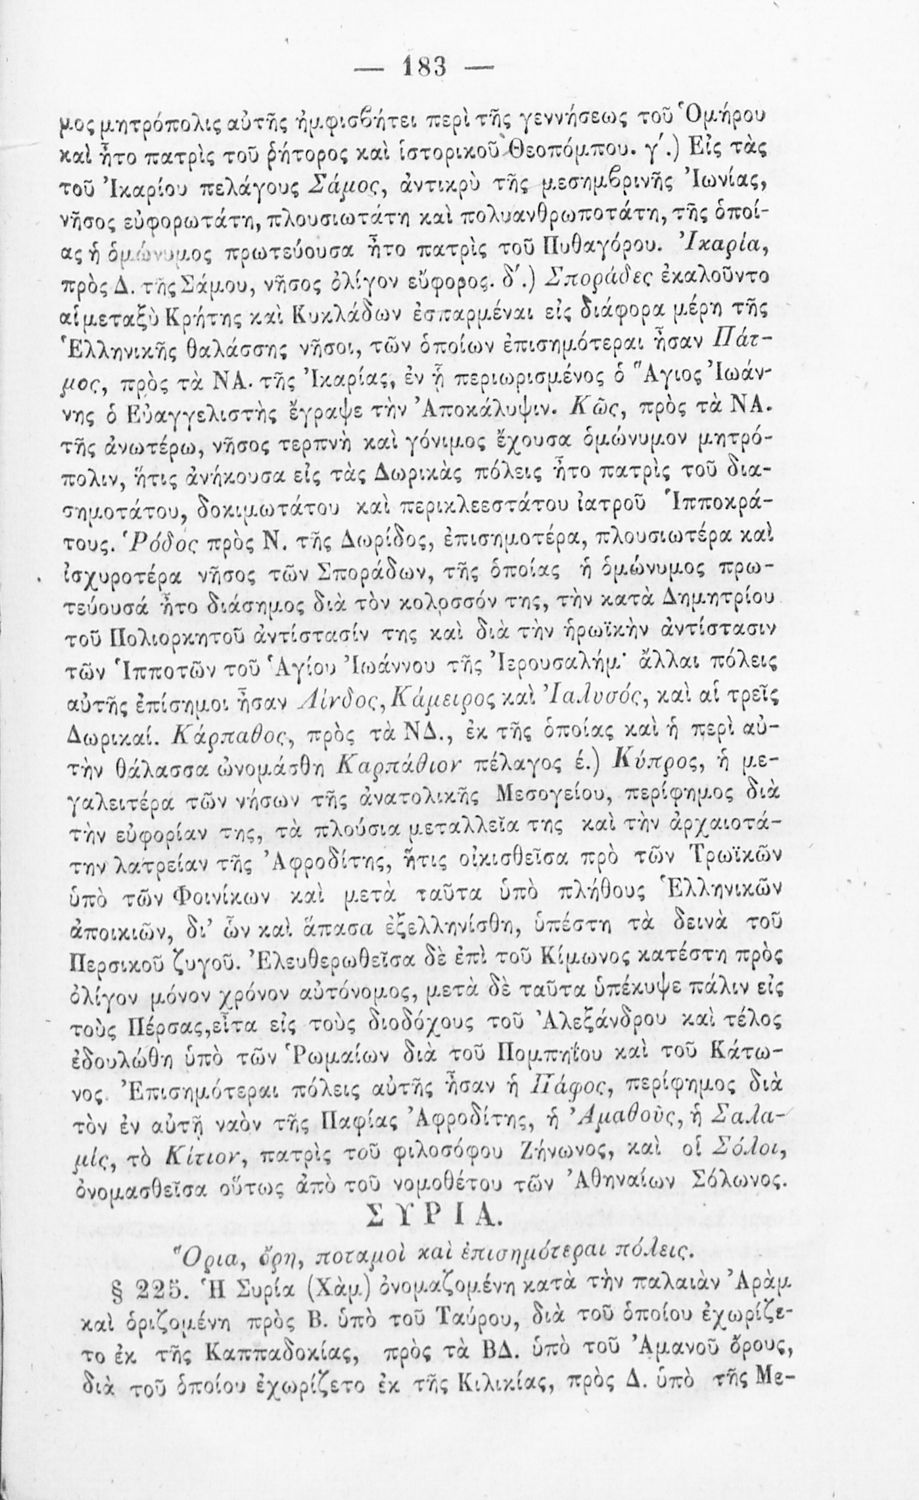 — 183 —
μος μητρόπολις αὐτῆς ἠμφισβήτει περὶ τῆς γεννήσεως τοῦ Ὁμήρου
καὶ ἦτο πατρὶς τοῦ ῥήτορος καὶ ἱστορικοῦ Θεοπόμπου. γ΄.) Εἰς τὰς
τοῦ Ἰκαρίου πελάγους Σάμος, ἀντικρὺ τῆς μεσημβρινῆς Ἰωνίας,
νῆσος εὐφορωτάτη, πλουσιωτάτη καὶ πολυανθρωποτάτη, τῆς ὁποί-
ας ἡ ὁμώνυμος πρωτεύουσα ἦτο πατρὶς τοῦ Πυθαγόρου. Ἰκαρία,
πρὸς Δ. τῆς Σάμου, νῆσος ὀλίγον εὔφορος. δ΄.) Σποράδες ἐκαλοῦντο
αἱ μεταξὺ Κρήτης καὶ Κυκλάδων ἐσπαρμέναι εἰς διάφορα μέρη τῆς
Ἑλληνικῆς θαλάσσης νῆσοι, τῶν ὁποίων ἐπισημότεραι ἦσαν Πάτ-
μος, πρὸς τὰ ΝΑ. τῆς Ἰκαρίας, ἐν ᾗ περιωρισμένος ὁ Ἅγιος Ἰωάν-
νης ὁ Εὐαγγελιστὴς ἔγραψε τὴν Ἀποκάλυψιν. Κῶς, πρὸς τὰ ΝΑ.
τῆς ἀνωτέρω, νῆσος τερπνὴ καὶ γόνιμος ἔχουσα ὁμώνυμον μητρό-
πολιν, ἥτις ἀνήκουσα εἰς τὰς Δωρικὰς πόλεις ἦτο πατρὶς τοῦ δια-
σημοτάτου, δοκιμωτάτου καὶ περικλεεστάτου ἰατροῦ Ἱπποκρά-
τους. Ῥόδος πρὸς Ν. τῆς Δωρίδος, ἐπισημοτέρα, πλουσιωτέρα καὶ
ἰσχυροτέρα νῆσος τῶν Σποράδων, τῆς ὁποίας ἡ ὁμώνυμος πρω-
τεύουσά ἦτο διάσημος διὰ τὸν κολοσσόν της, τὴν κατὰ Δημητρίου
τοῦ Πολιορκητοῦ ἀντίστασίν της καὶ διὰ τὴν ἡρωϊκὴν ἀντίστασιν
τῶν Ἱπποτῶν τοῦ Ἁγίου Ἰωάννου τῆς Ἱερουσαλήμ· ἄλλαι πόλεις
αὐτῆς ἐπίσημοι ἦσαν Λίνδος, Κάμειρος καὶ Ἰαλυσός, καὶ αἱ τρεῖς
Δωρικαί. Κάρπαθος, πρὸς τὰ ΝΔ., ἐκ τῆς ὁποίας καὶ ἡ περὶ αὐ-
τὴν θάλασσα ὠνομάσθη Καρπάθιον πέλαγος έ.) Κύπρος, ἡ με-
γαλειτέρα τῶν νήσων τῆς ἀνατολικῆς Μεσογείου, περίφημος διὰ
τὴν εὐφορίαν της, τὰ πλούσια μεταλλεῖα της καὶ τὴν ἀρχαιοτά-
την λατρείαν τῆς Ἀφροδίτης, ἥτις οἰκισθεῖσα πρὸ τῶν Τρωϊκῶν
ὑπὸ τῶν Φοινίκων καὶ μετὰ ταῦτα ὑπὸ πλήθους Ἑλληνικῶν
ἀποικιῶν, δι' ὧν καὶ ἅπασα ἐξελληνίσθη, ὑπέστη τὰ δεινὰ τοῦ
Περσικοῦ ζυγοῦ. Ἐλευθερωθεῖσα δὲ ἐπὶ τοῦ Κίμωνος κατέστη πρὸς
ὀλίγον μόνον χρόνον αὐτόνομος, μετὰ δὲ ταῦτα ὑπέκυψε πάλιν εἰς
τοὺς Πέρσας, εἶτα εἰς τοὺς διοδόχους τοῦ Ἀλεξάνδρου καὶ τέλος
ἐδουλώθη ὑπὸ τῶν Ῥωμαίων διὰ τοῦ Πομπηΐου καὶ τοῦ Κάτω-
νος. Ἐπισημότεραι πόλεις αὐτῆς ἦσαν ἡ Πάφος, περίφημος διὰ
τὸν ἐν αὐτῇ ναὸν τῆς Παφίας Ἀφροδίτης, ἡ Ἀμαθοῦς, ἡ Σαλα-
μίς, τὸ Κίτιον, πατρὶς τοῦ φιλοσόφου Ζήνωνος, καὶ οἱ Σόλοι,
ὀνομασθεῖσα οὕτως ἀπὸ τοῦ νομοθέτου τῶν Ἀθηναίων Σόλωνος.
ΣΥΡΙΑ.
Ὅρια, ὄρη, ποταμοὶ καὶ ἐπισημότεραι πόλεις.
§ 225. Ἡ Συρία (Χὰμ) ὀνομαζομένη κατὰ τὴν παλαιὰν Ἀρὰμ
καὶ ὁριζομένη πρὸς Β. ὑπὸ τοῦ Ταύρου, διὰ τοῦ ὁποίου ἐχωρίζε-
το ἐκ τῆς Καππαδοκίας, πρὸς τὰ ΒΔ. ὑπὸ τοῦ Ἀμανοῦ ὄρους,
διὰ τοῦ ὁποίου ἐχωρίζετο ἐκ τῆς Κιλικίας, πρὸς Δ. ὑπὸ τῆς Με-